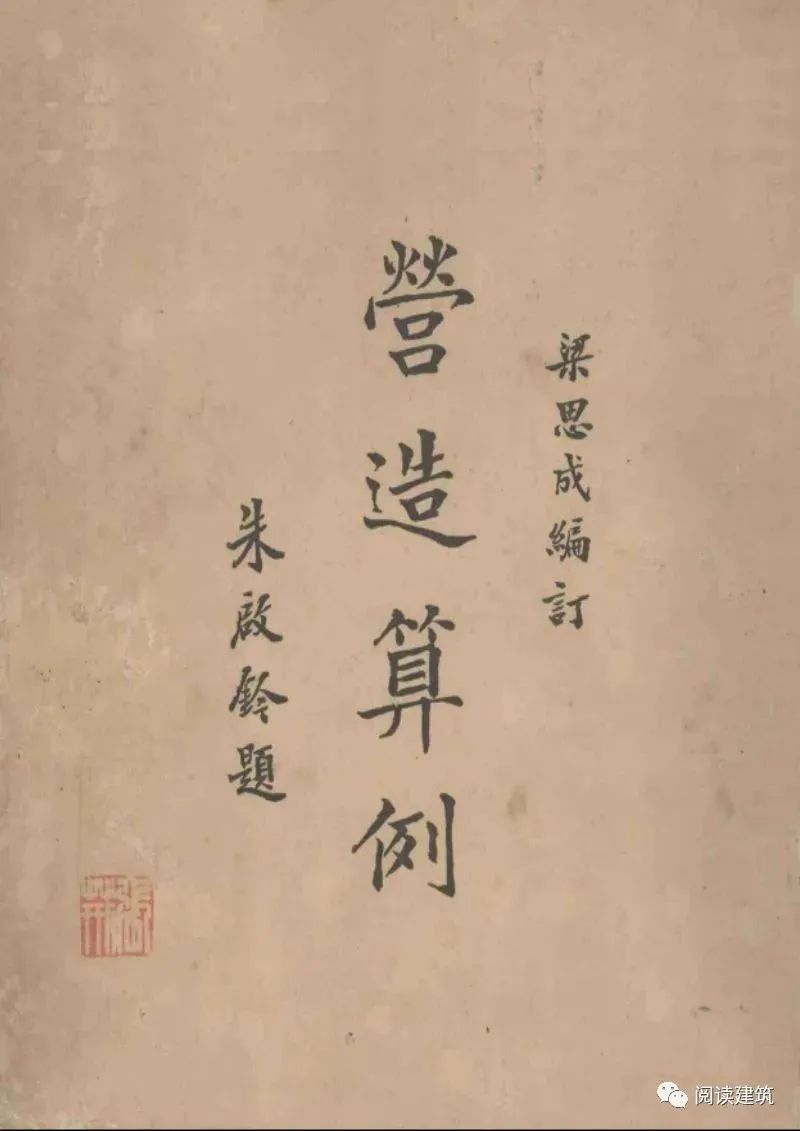 梁思成編訂
營造算例
朱啟鈐題
阅读建筑